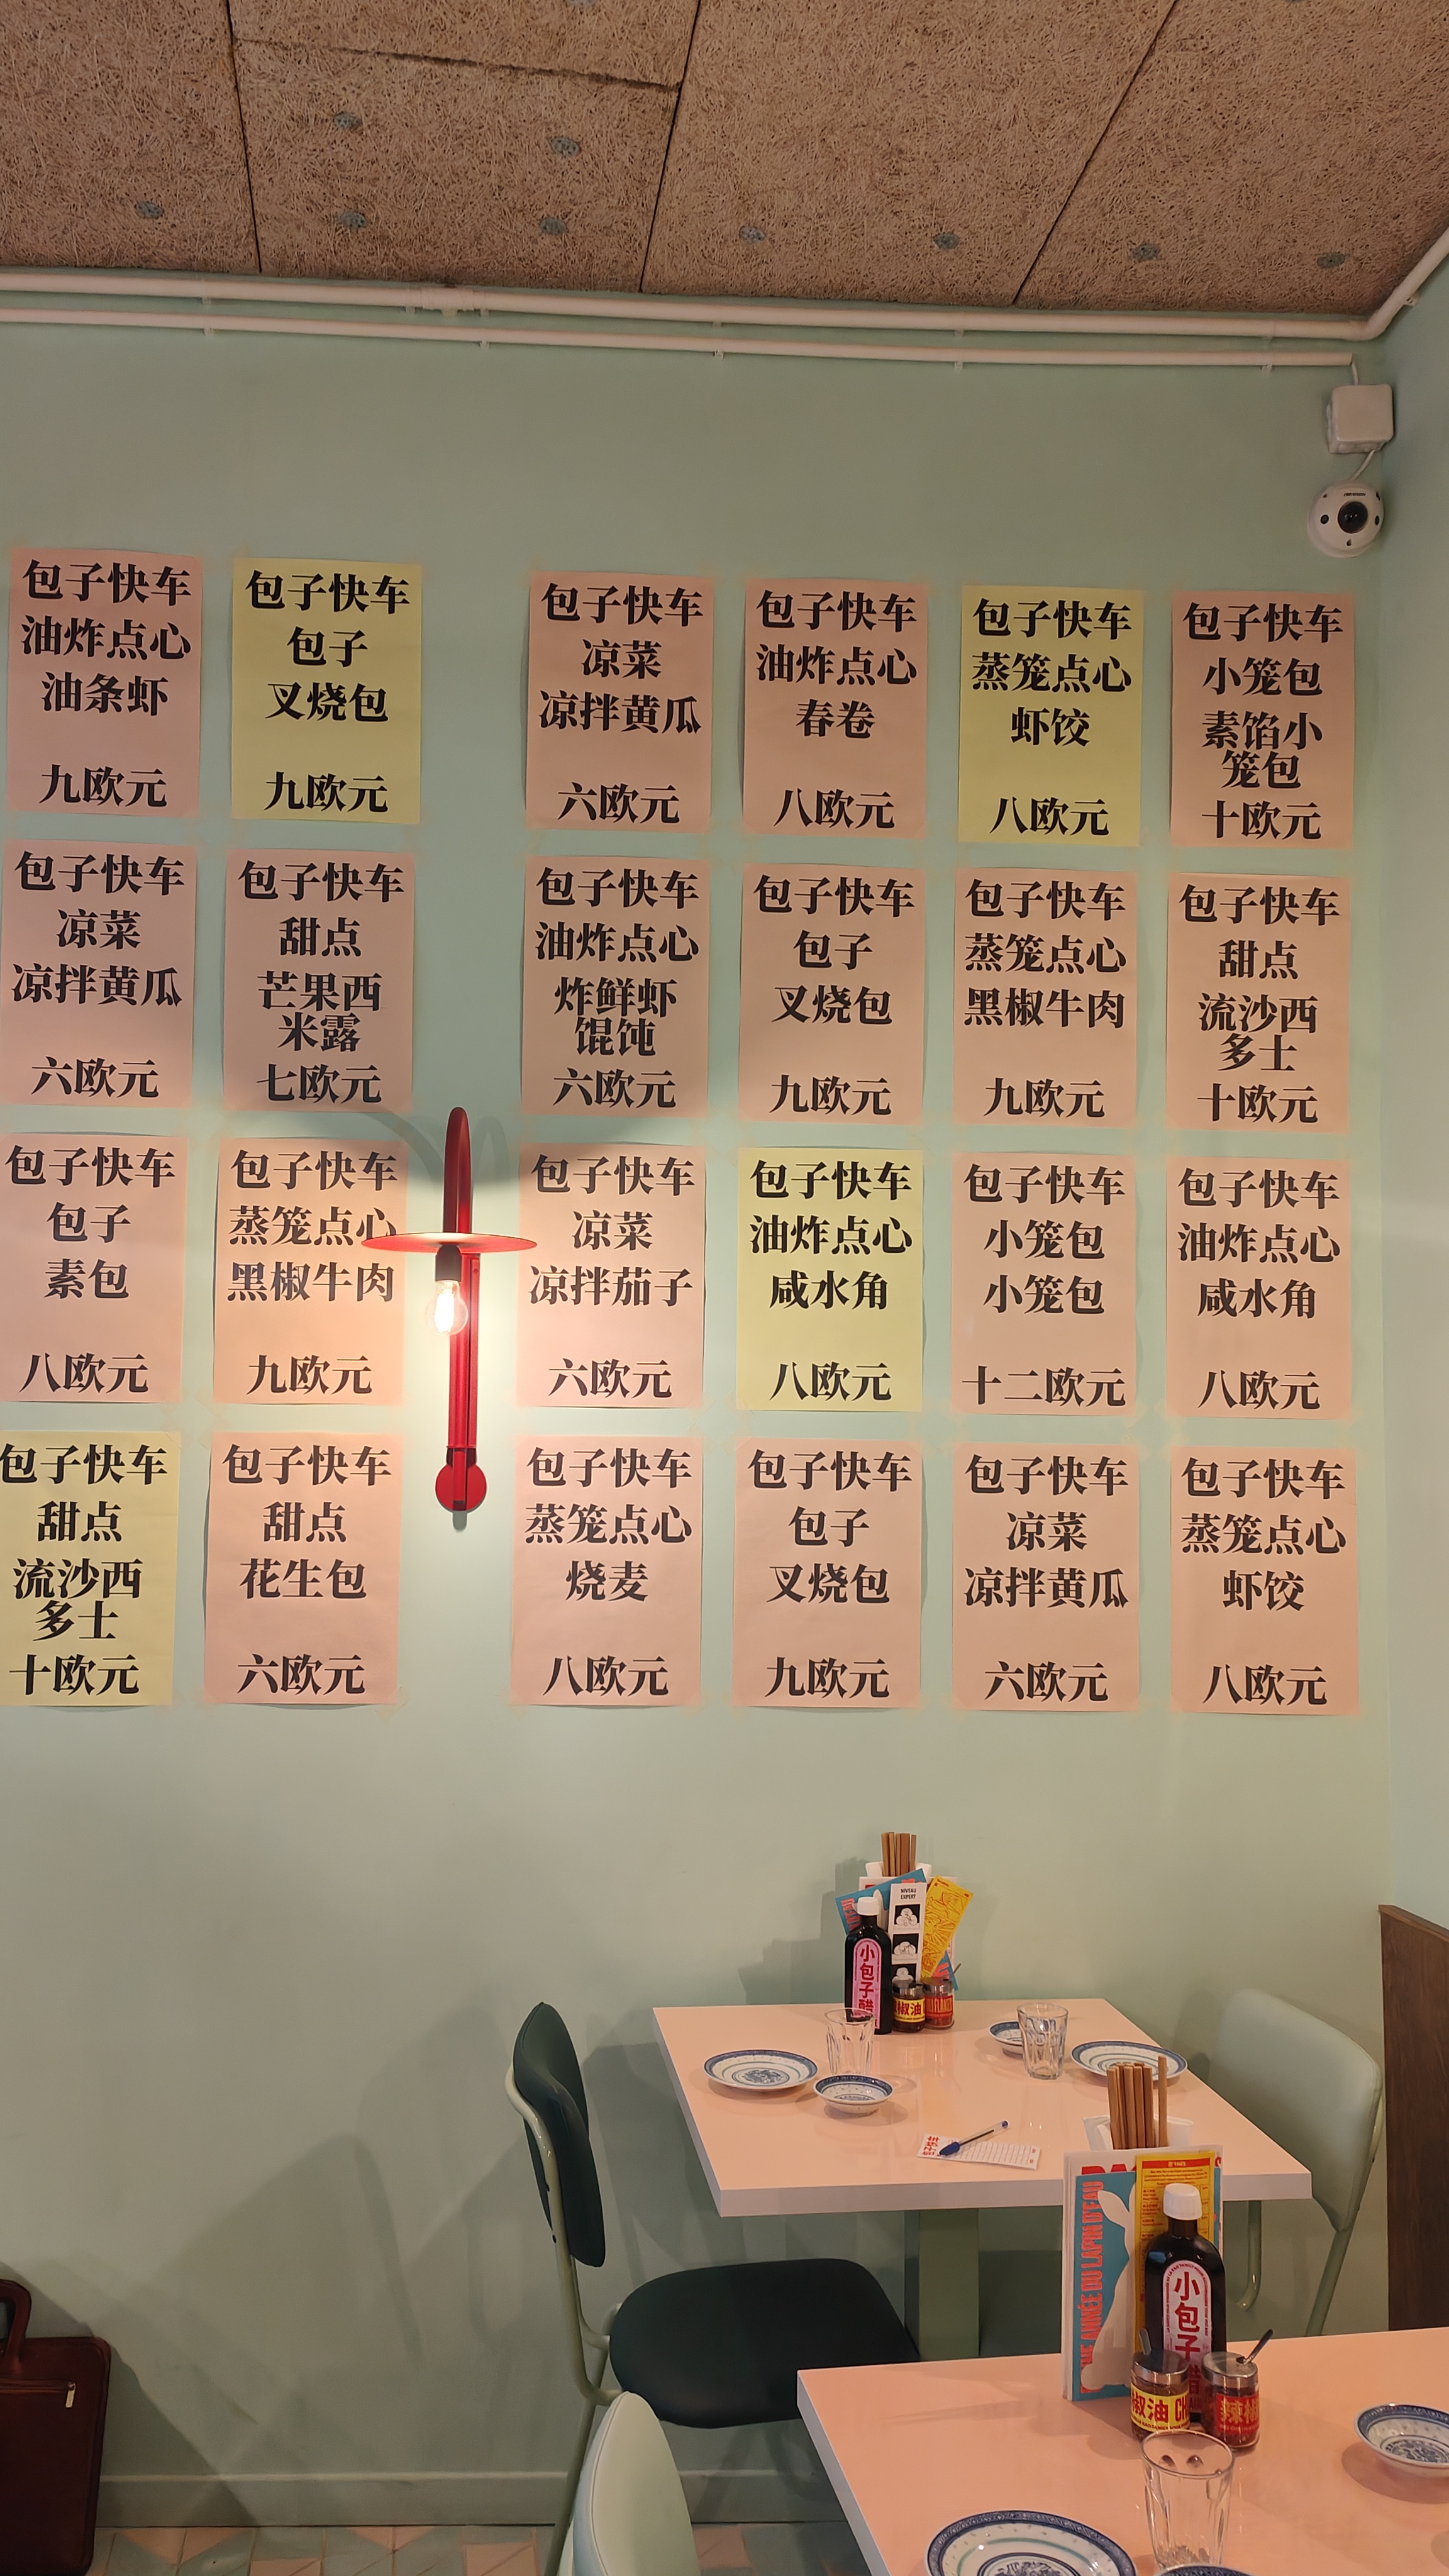 包子快车
油炸点心
油条虾
九欧元
包子快车
包子
叉烧包
九欧元
包子快车
凉菜
凉拌黄瓜
六欧元
包子快车
油炸点心
春卷
八欧元
包子快车
蒸笼点心
虾饺
八欧元
包子快车
小笼包
素馅小
笼包
十欧元
包子快车
凉菜
凉拌黄瓜
六欧元
包子快车
甜点
芒果西
米露
七欧元
包子快车
油炸点心
炸鲜虾
馄饨
六欧元
包子快车
包子
叉烧包
九欧元
包子快车
蒸笼点心
黑椒牛肉
九欧元
包子快车
甜点
流沙西
多士
十欧元
包子快车
包子
素包
八欧元
包子快车
蒸笼点心
黑椒牛肉
九欧元
包子快车
凉菜
凉拌茄子
六欧元
包子快车
油炸点心
咸水角
八欧元
包子快车
小笼包
小笼包
十二欧元
包子快车
油炸点心
咸水角
八欧元
包子快车
甜点
流沙西
多士
十欧元
包子快车
甜点
花生包
六欧元
包子快车
蒸笼点心
烧麦
八欧元
包子快车
包子
叉烧包
九欧元
包子快车
凉菜
凉拌黄瓜
六欧元
包子快车
蒸笼点心
虾饺
八欧元
NIVEAU
EXPERT
小包子醋
椒油
ANNÉE DU LAPIN D'EAU
小包子醋
椒油
辣椒